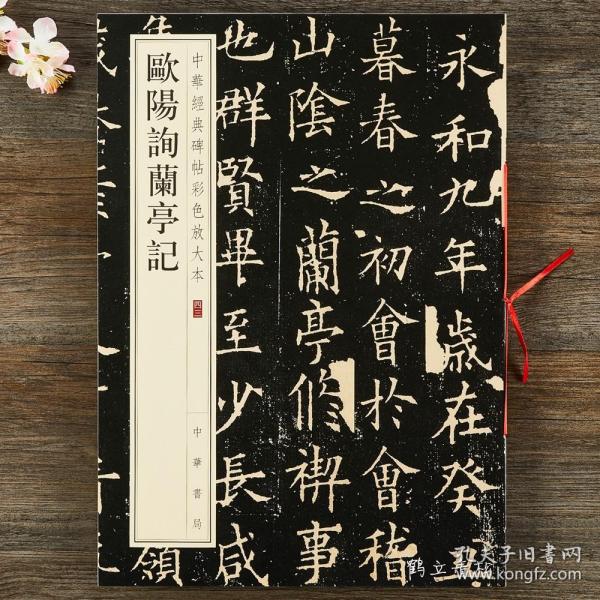 永和九年歲在癸
暮春之初會於會稽
山陰之蘭亭脩禊事
也群賢畢至少長咸
領
中華經典碑帖彩色放大本
四三
中華書局
歐陽詢蘭亭記
孔夫子旧书网
www.kongfz.com